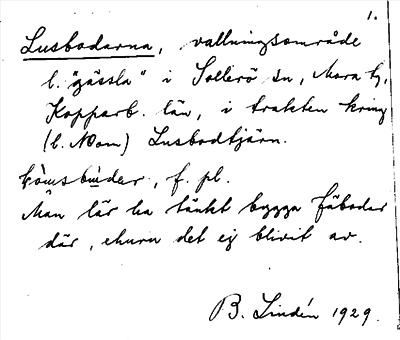 1.
Lusbodarna, vallningsområde
l. "gässla" i Sollerö sn, Mora tg,
Kopparb. län, i trakten kring
(l. NOom) Lusbodtjärn.
f. pl.
Man lär ha tänkt bygga fäbodar
där, ehuru det ej blivit av.
B. Lindén 1929.